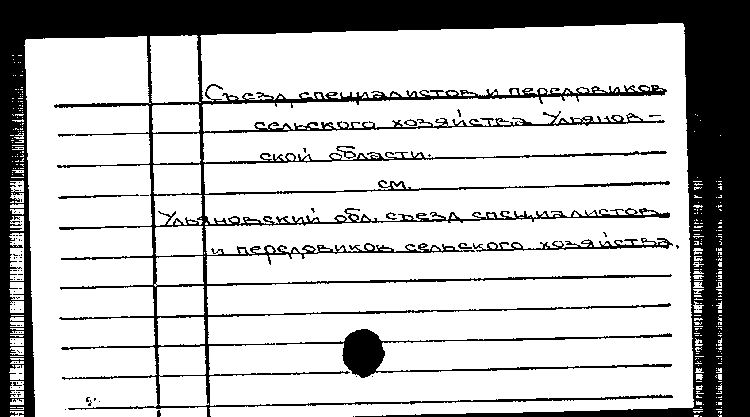 Съезд специалистов и передовиков
сельского хозяйства Ульянов-
ской области.
см.
Ульяновский обл. съезд специалистов
и передовиков сельского хозяйства.